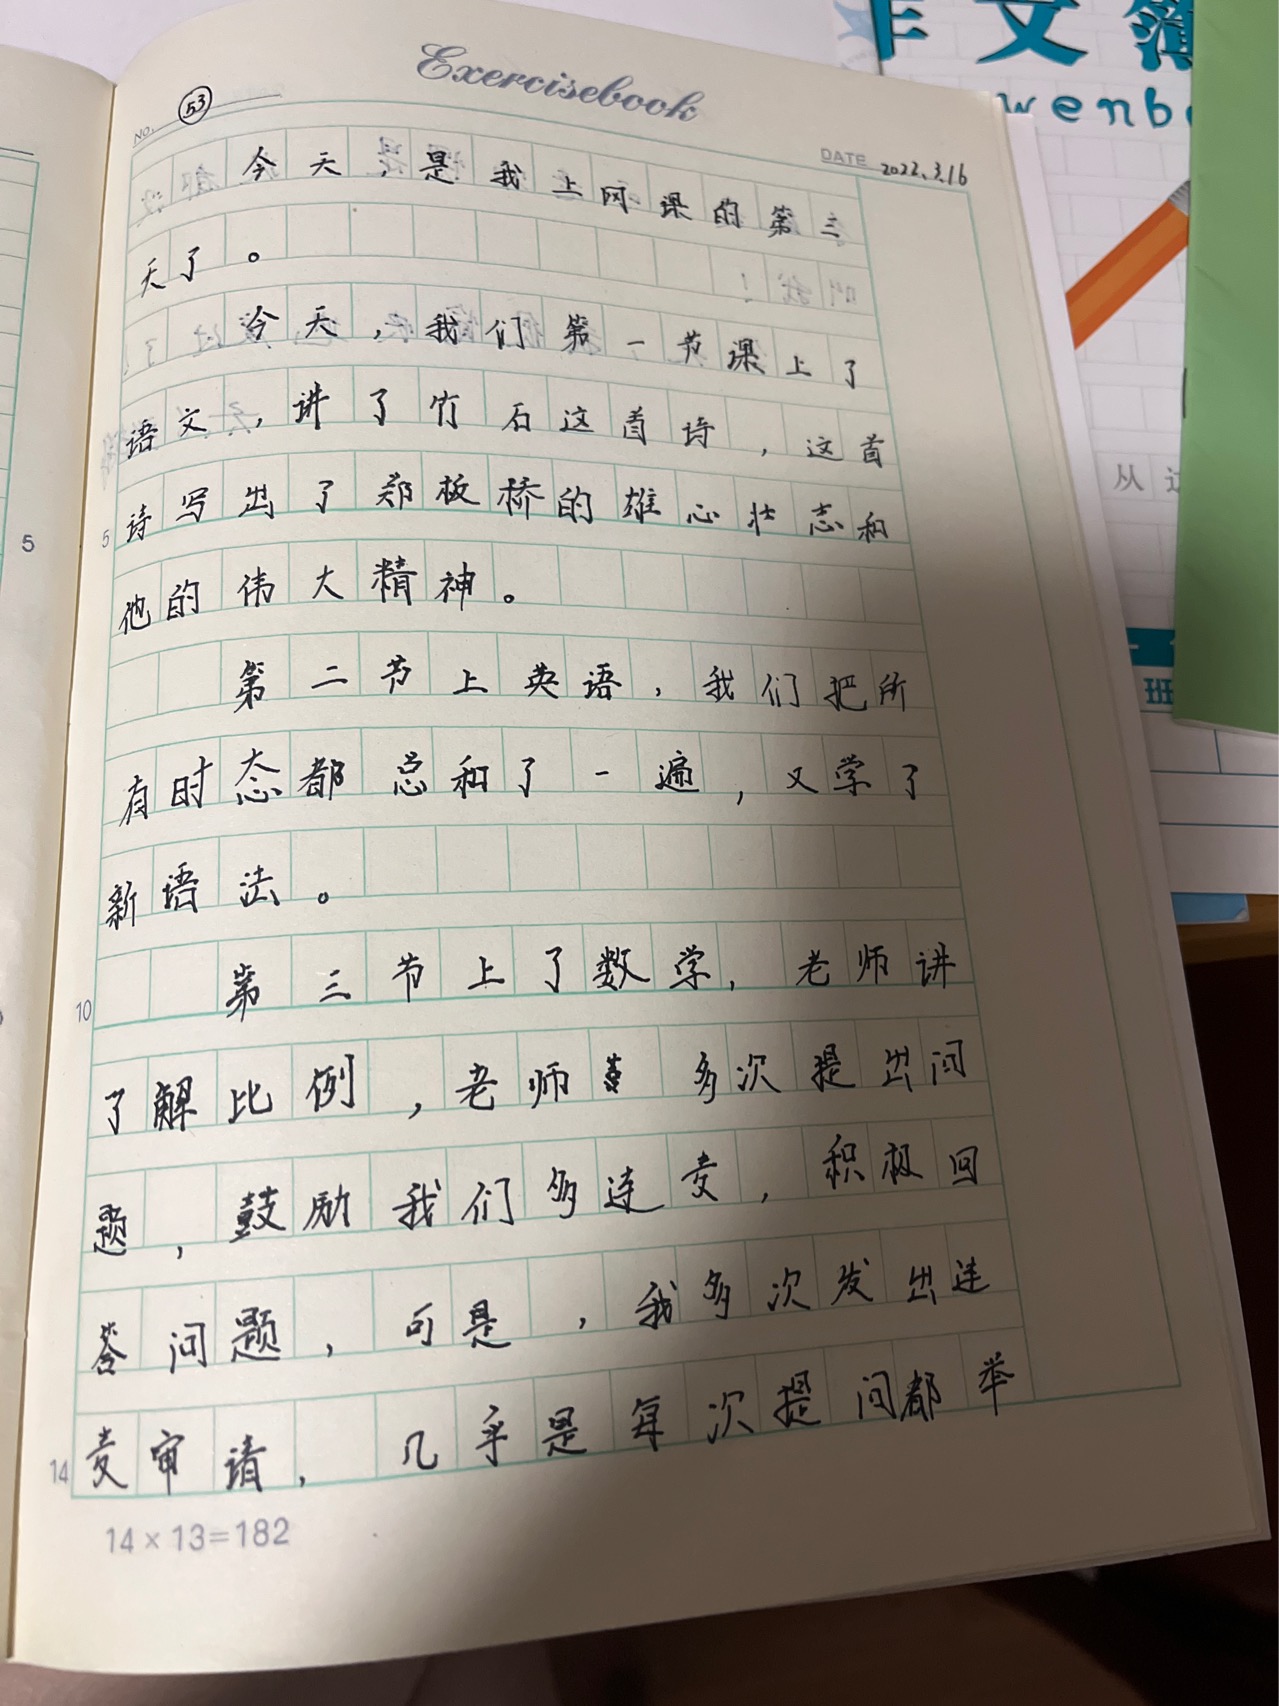 Exercisebook
NO. 53
DATE 2022.3.16
今天,是我上网课的第三
天了。
今天,我们第一节课上了
语文,讲了竹石这首诗,这首
诗写出了郑板桥的雄心壮志和
他的伟大精神。
第二节上英语,我们把所
有时态都总和了一遍,又学了
新语法。
第三节上了数学,老师讲
了解比例,老师 多次提出问
题,鼓励我们多连麦,积极回
答问题,可是,我多次发出连
麦审请,几乎是每次提问都举
5
10
14
14×13=182
5
作文簿
wenb
从
班